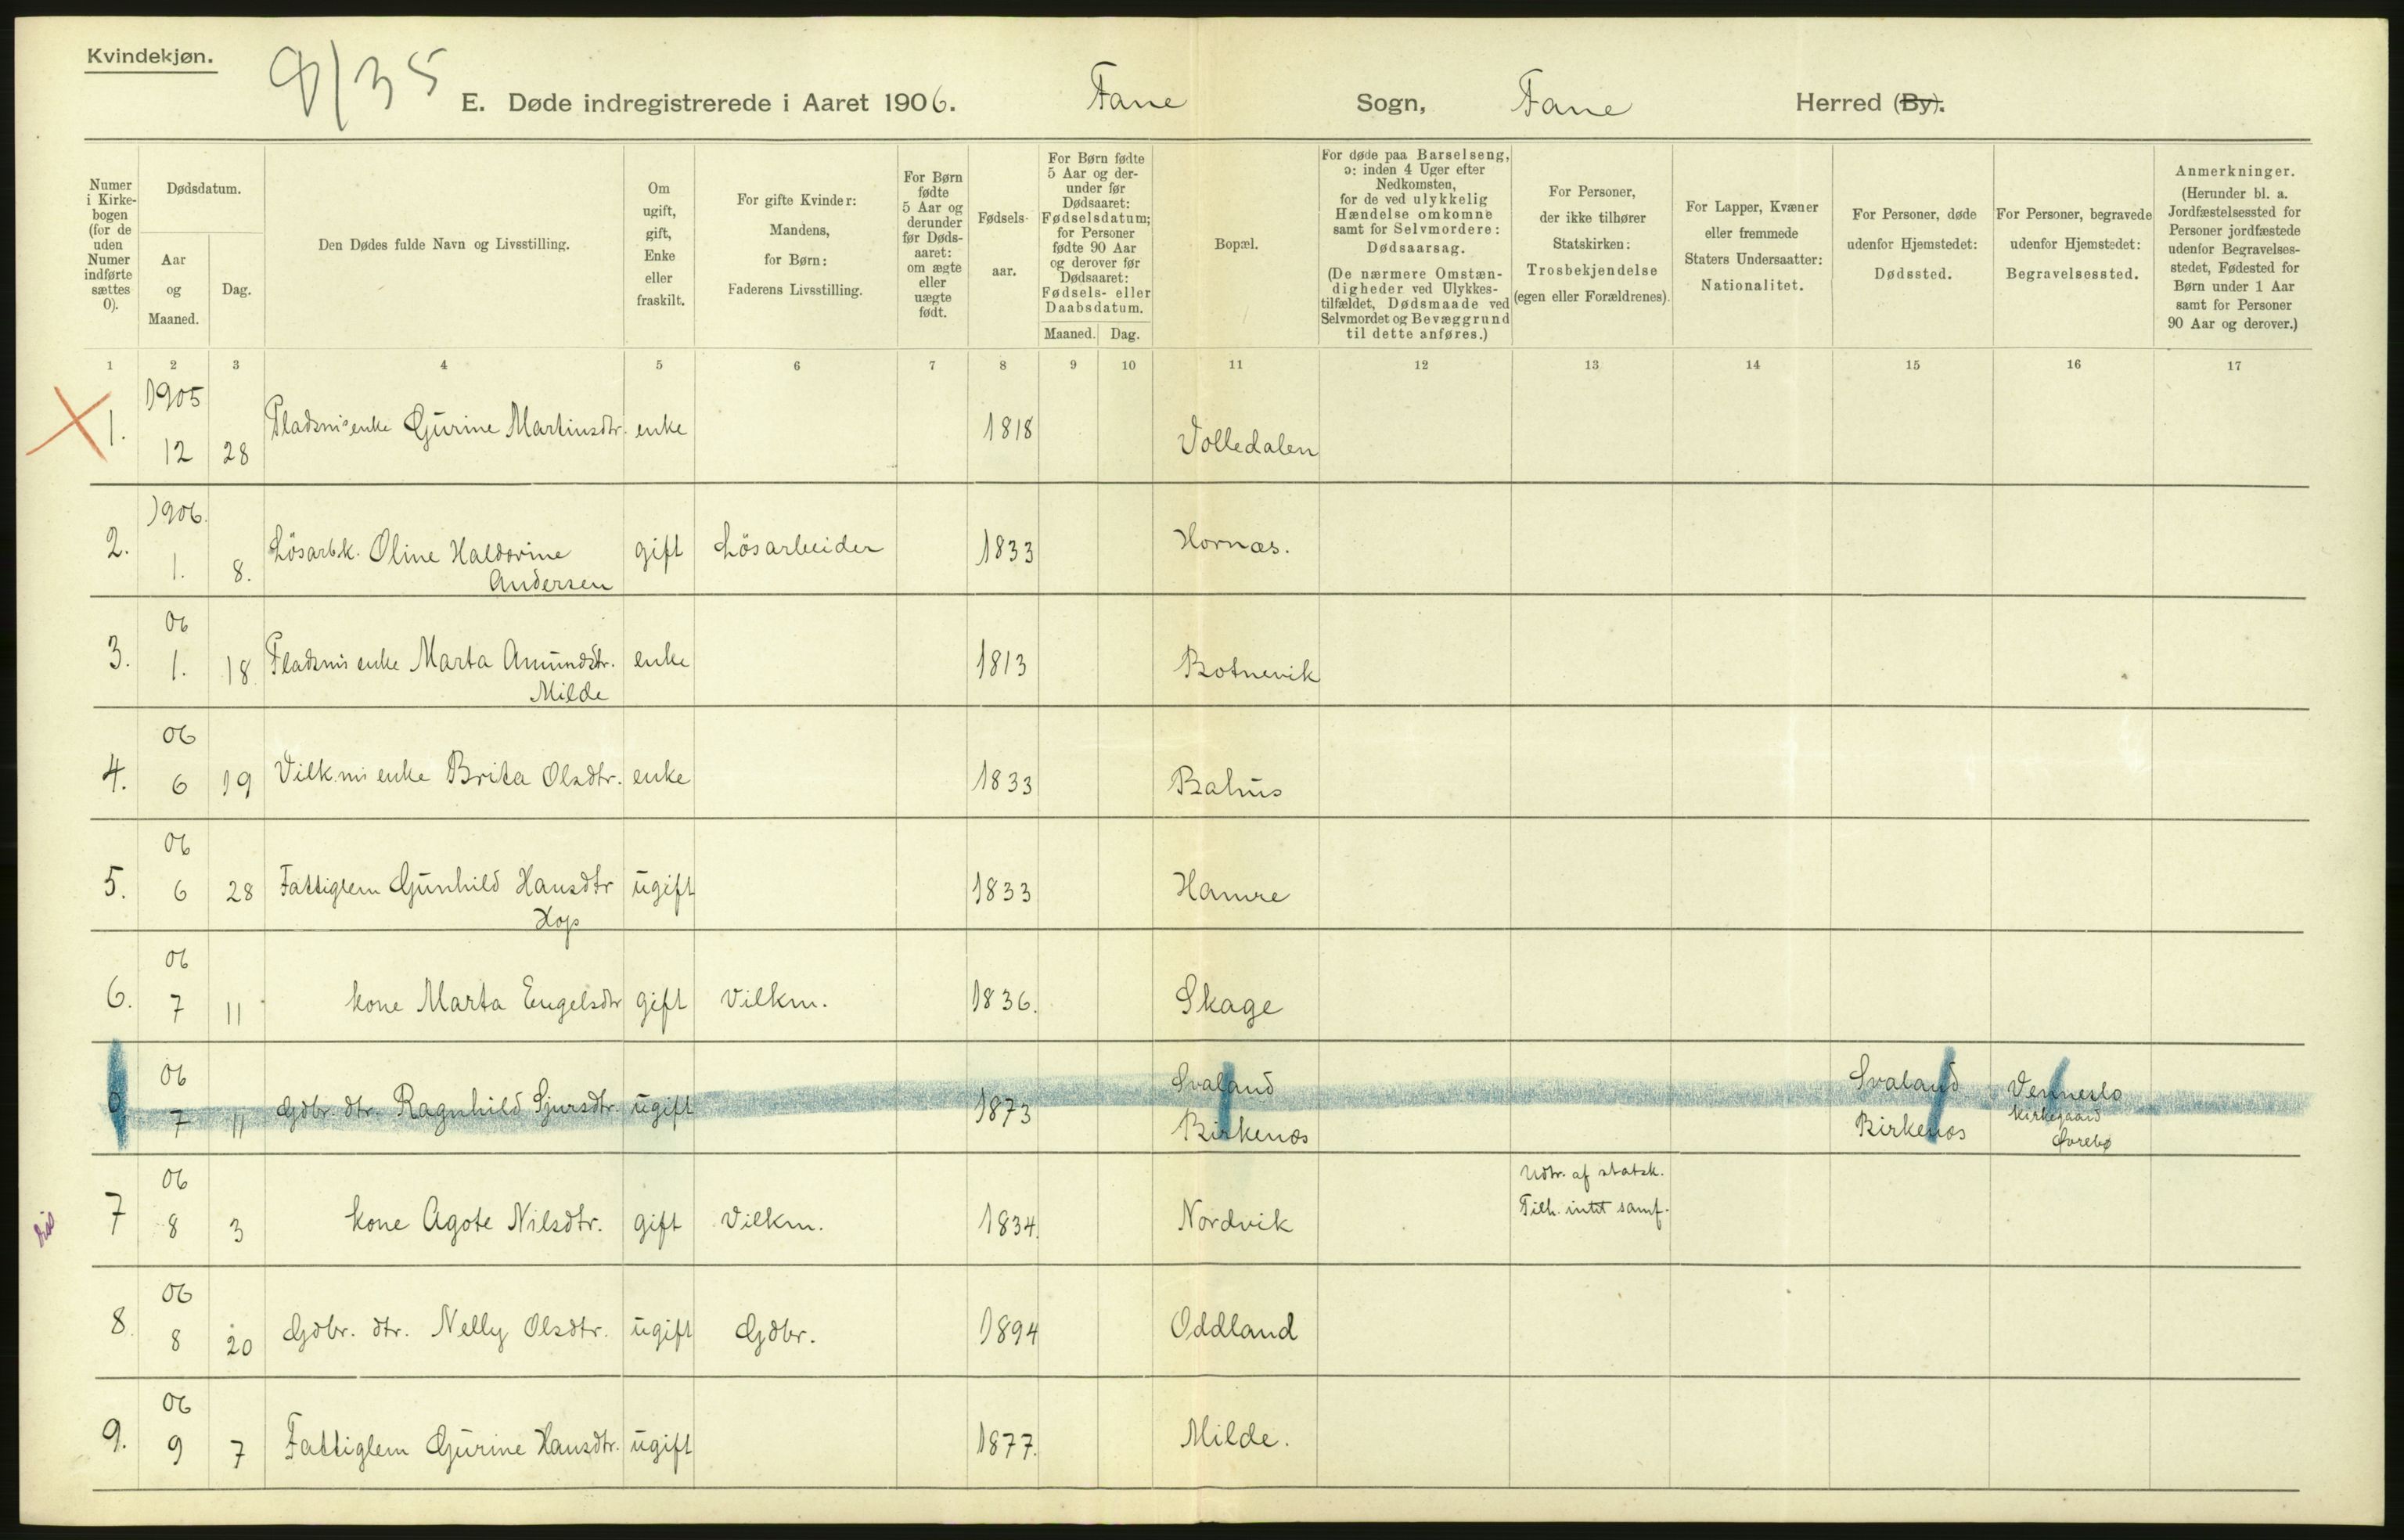 Kvindekjøn.
9/35
E. Døde indregistrerede i Aaret 1906. Fane Sogn, Fane Herred (By).
Numer i Kirkebogen (for de uden Numer indførte sættes 0).
Dødsdatum.
Aar og Maaned.
Dag.
Den Dødes fulde Navn og Livsstilling.
Om ugift, gift, Enke eller fraskilt.
For gifte Kvinder: Mandens, for Børn: Faderens Livsstilling.
For Børn fødte 5 Aar og derunder før Dødsaaret: om ægte eller uægte født.
Fødselsaar.
For Børn fødte 5 Aar og derunder før Dødsaaret: Fødselsdatum; for Personer fødte 90 Aar og derover før Dødsaaret: Fødsels- eller Daabsdatum.
Maaned. Dag.
Bopæl.
For døde paa Barselseng, ɔ: inden 4 Uger efter Nedkomsten, for de ved ulykkelig Hændelse omkomne samt for Selvmordere: Dødsaarsag.
(De nærmere Omstændigheder ved Ulykkestilfældet, Dødsmaade ved Selvmordet og Bevæggrund til dette anføres.)
For Personer, der ikke tilhører Statskirken: Trosbekjendelse (egen eller Forældrenes).
For Lapper, Kvæner eller fremmede Staters Undersaatter: Nationalitet.
For Personer, døde udenfor Hjemstedet: Dødssted.
For Personer, begravede udenfor Hjemstedet: Begravelsessted.
Anmerkninger.
(Herunder bl. a. Jordfæstelsessted for Personer jordfæstede udenfor Begravelsesstedet, Fødested for Børn under 1 Aar samt for Personer 90 Aar og derover.)
1 2 3 4 5 6 7 8 9 10 11 12 13 14 15 16 17
1905
1. 12 28 Pladsms enke Gurine Martinsdtr. enke 1818 Volledalen
1906.
2. 1. 8. Løsarb.k. Oline Haldorine Andersen gift Løsarbeider 1833 Hornæs.
06
3. 1. 18 Pladsms enke Marta Amundstr. Milde enke 1813 Botnevik
06
4. 6 19 Vilk.ms enke Brita Olsdtr. enke 1833 Bahus
06
5. 6 28 Fattiglem Gunhild Hansdtr Hop ugift 1833 Hamre
06
6. 7 11 kone Marta Engelsdtr gift Vilkm. 1836. Skage
06
0 7 11 Gdbr. dtr. Ragnhild Sjursdtr. ugift 1873 Svaland Birkenæs Svaland Birkenæs Venneslo Kirkegaard Øvrebø
06
7 8 3 kone Agote Nilsdtr. gift Vilkm. 1834. Nordvik Udtr. af statsk. Tilh. intet samf.
06
8. 8 20 Gdbr. dtr. Nelly Olsdtr. ugift Gdbr. 1894 Oddland
06
9. 9 7 Fattiglem Gurine Hansdtr. ugift 1877. Milde.